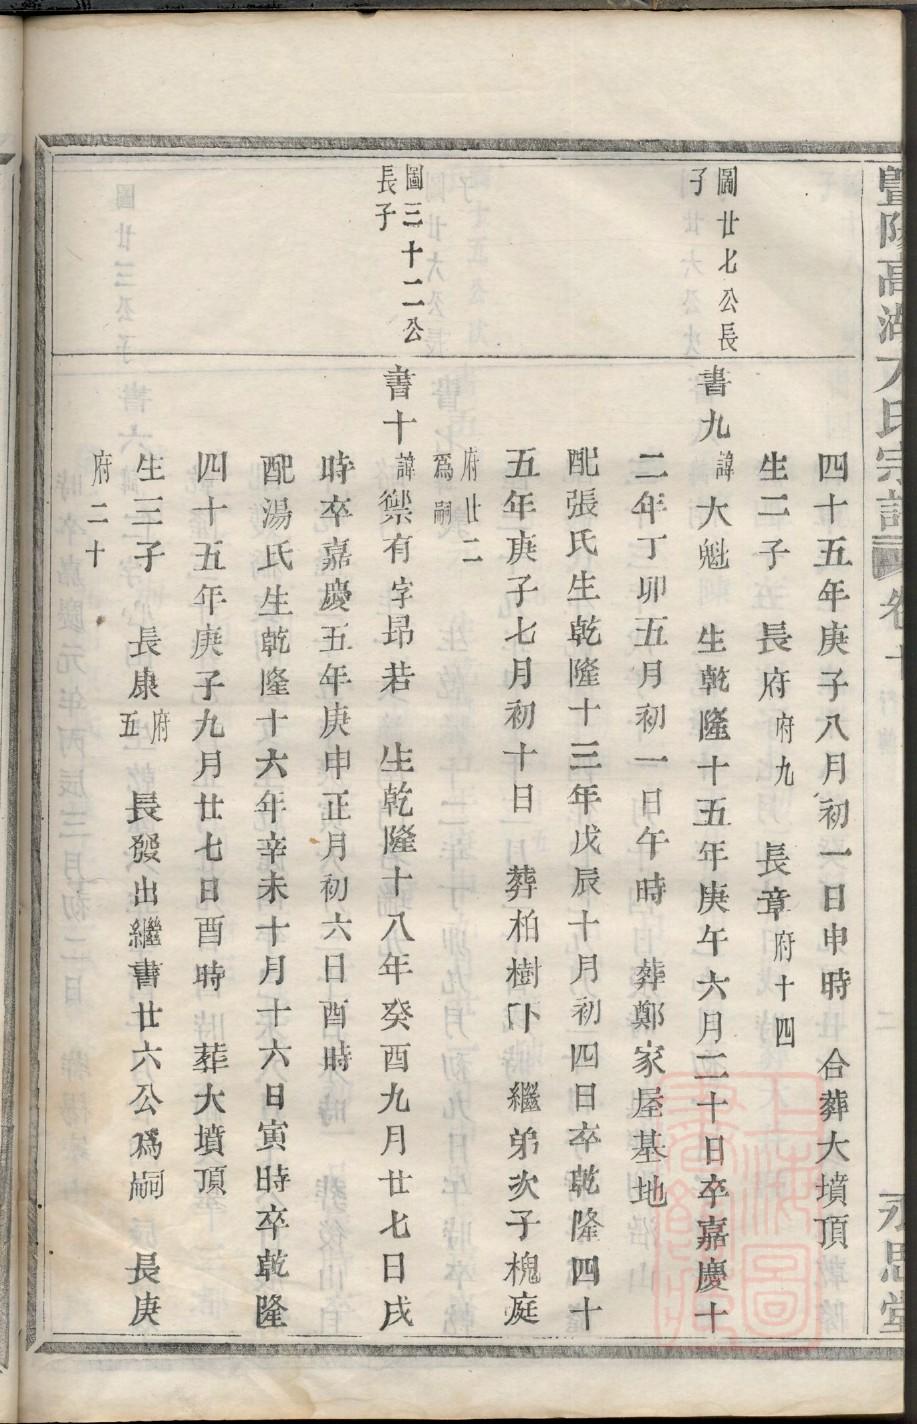 暨陽高湖方氏宗譜 卷十 永思堂
四十五年庚子八月初一日申時 合葬大墳頂
生二子 長府府九 長章府十四
圖廿七公長子
書九諱大魁 生乾隆十五年庚午六月二十日卒嘉慶十
二年丁卯五月初一日午時 葬鄭家屋基地
配張氏生乾隆十三年戊辰十月初四日卒乾隆四十
五年庚子七月初十日 葬柏樹下 繼弟次子槐庭
府廿二爲嗣
圖三十二公長子
書十諱禦有字昂若 生乾隆十八年癸酉九月廿七日戌
時卒嘉慶五年庚申正月初六日酉時
配湯氏生乾隆十六年辛未十月十六日寅時卒乾隆
四十五年庚子九月廿七日酉時 葬大墳頂
生三子 長康府五 長發出繼書廿六公爲嗣 長庚
府二十